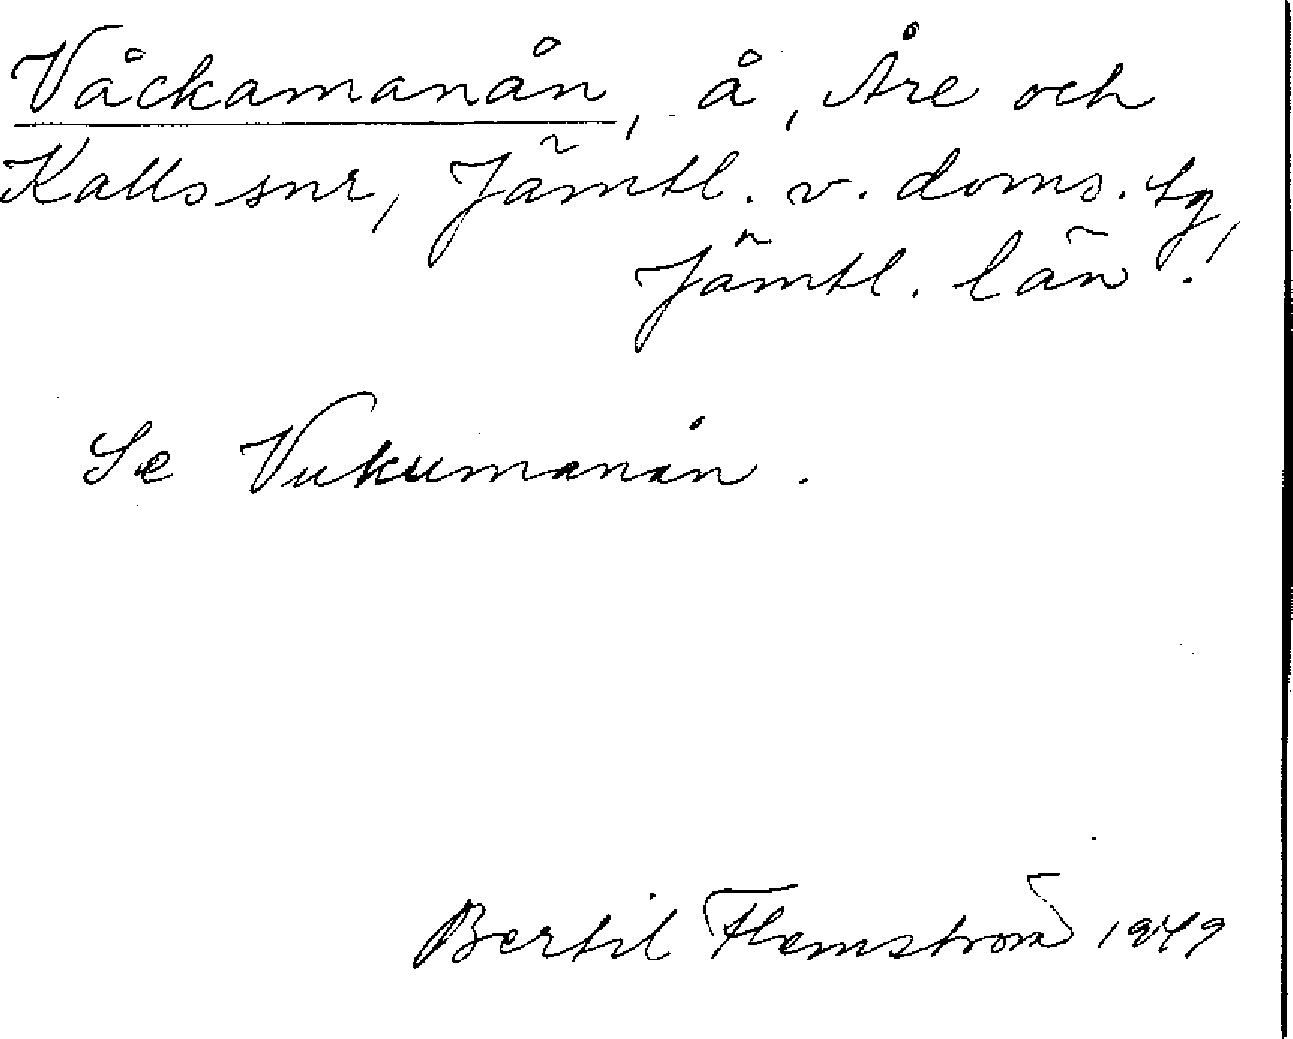 Våckamanån, å, Åre och
Kalls snr, Jämtl. v. doms. tg,
Jämtl. län.
Se Vukumanån.
Bertil Flemström 1949